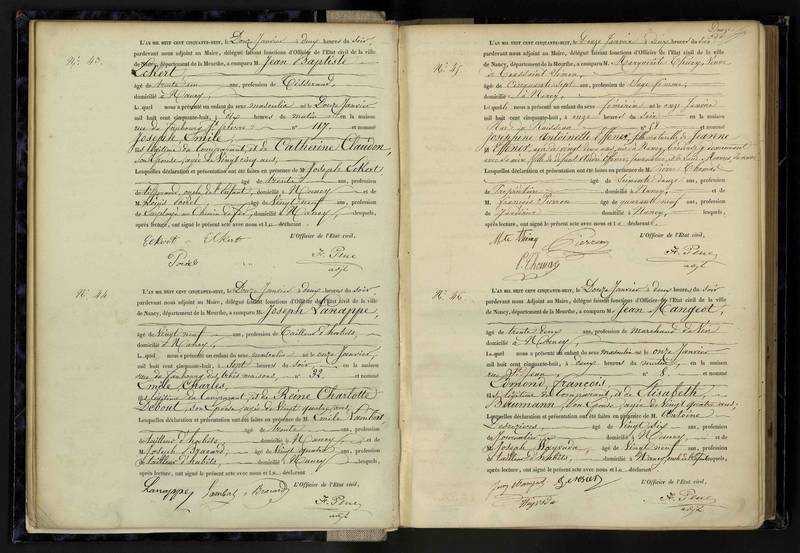 N°. 43.
L'AN MIL HUIT CENT CINQUANTE-HUIT, le Douze Janvier à deux heures du soir,
pardevant nous adjoint au Maire, délégué faisant fonctions d'Officier de l'Etat civil de la ville
de Nancy, département de la Meurthe, a comparu M. Jean Baptiste
Eckert,
âgé de trente un ans, profession de Tisserand,
domicilié à Nancy,
Lequel nous a présenté un enfant du sexe masculin né le Douze Janvier
mil huit cent cinquante-huit, à dix heures du matin en la maison
rue du faubourg St pierre n° 117. et nommé
Joseph Emile
fils légitime du Comparant, et de Catherine Claudon,
son Epouse, agée de Vingt cinq ans,
Lesquelles déclaration et présentation ont été faites en présence de M. Joseph Eckert
âgé de trente ans, profession
de tisserand, oncle de l'enfant, domicilié à Nancy et de
M. Louis Poirel, âgé de Vingt neuf ans, profession
de Employé au Chemin de fer, domicilié à Nancy, lesquels,
après lecture, ont signé le présent acte avec nous et le déclarant.
L'Officier de l'Etat civil,
Eckert
Eckert
Poirel
Fr. Pene
adjt
N°. 44
L'AN MIL HUIT CENT CINQUANTE-HUIT, le Douze Janvier à deux heures du soir
pardevant nous Adjoint au Maire, délégué faisant fonctions d'Officier de l'Etat civil de la ville
de Nancy, département de la Meurthe, a comparu M. Joseph Lanappe,
âgé de Vingt neuf ans, profession de Tailleur d'habits,
domicilié à Nancy,
Lequel nous a présenté un enfant du sexe masculin né le onze Janvier,
mil huit cent cinquante-huit, à Sept heures du soir, en la maison
rue du faubourg des trois maisons, n° 32, et nommé
Emile Charles,
fils légitime du Comparant, et de Reine Charlotte
Debout, son Epouse agée de Vingt quatre ans,
Lesquelles déclaration et présentation ont été faites en présence de M. Emile Lambert,
âgé de trente ans, profession
de tailleur d'habits, domicilié à Nancy, et de
M. Joseph Bracard, âgé de Vingt quatre ans, profession
de tailleur d'habits, domicilié à Nancy lesquels,
après lecture, ont signé le présent acte avec nous et le déclarant
L'Officier de l'Etat civil,
Lanappe
Fr. Pene
adjt
N°. 45.
L'AN MIL HUIT CENT CINQUANTE-HUIT, le Douze Janvier à deux heures du soir
pardevant nous adjoint au Maire, délégué faisant fonctions d'Officier de l'Etat civil de la ville
de Nancy, département de la Meurthe, a comparu M. Marguerite Thiéry, Veuve
de Toussaint Simon,
âgée de Cinquante sept ans, profession de Sage femme,
domiciliée à Nancy,
Laquelle nous a présenté un enfant du sexe féminin né le onze Janvier
mil huit cent cinquante-huit, à onze heures du soir en la maison
n° et nommé
Joséphine Antoinette fille naturelle de Jeanne
Lesquelles déclaration et présentation ont été faites en présence de M. Pierre Thomas
âgé de Soixante douze ans, profession
de Propriétaire domicilié à Nancy, et de
M. François Pierron âgé de quarante neuf ans, profession
de Jardinier domicilié à Nancy, lesquels,
après lecture, ont signé le présent acte avec nous et la déclarante.
L'Officier de l'Etat civil,
Mte Thiéry
Pierron
P. Thomas
Fr. Pene
adjt
N°. 46.
L'AN MIL HUIT CENT CINQUANTE-HUIT, le Douze Janvier à deux heures du soir
pardevant nous Adjoint au Maire, délégué faisant fonctions d'Officier de l'Etat civil de la ville
de Nancy, département de la Meurthe, a comparu M. Jean Mangeot,
âgé de trente deux ans, profession de marchand de Vin
domicilié à Nancy,
Lequel nous a présenté un enfant du sexe masculin né le onze Janvier
mil huit cent cinquante-huit, à deux heures du matin, en la maison
rue St Jean n° 8. et nommé
Edmond François,
fils légitime du Comparant, et de Elisabeth
Baumann son Epouse agée de Vingt quatre ans,
Lesquelles déclaration et présentation ont été faites en présence de M. Antoine
âgé de Vingt six ans, profession
de domicilié à Nancy, et de
M. Joseph âgé de Vingt neuf ans, profession
de tailleur d'habits, domicilié à Nancy, lesquels,
après lecture, ont signé le présent acte avec nous et le déclarant
L'Officier de l'Etat civil,
Fr. Pene
adjt